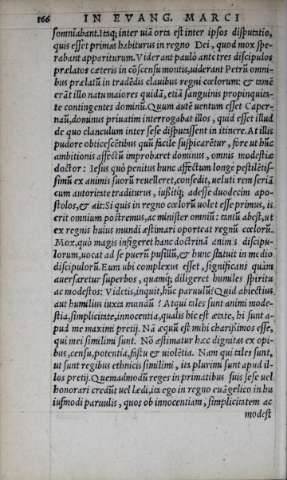 166 IN EVANG. MARCI
somniabant. Itaq; inter uiā orta est inter ipsos disputatio,
quis esset primas habiturus in regno Dei, quod mox spe-
rabant appariturum. Viderant paulo ante tres discipulos
prælatos cæteris in cōscensu montis, uiderant Petrū omni-
bus prælatū in tradēdis clauibus regni cœlorum: & conue
erāt illo natu maiores quidā, etiā sanguinis propinquita-
te contingentes dominū. Quum autē uentum esset Caper-
naū, dominus priuatim interrogabat illos, quid esset illud
de quo clanculum inter sese disputassent in itinere. At illis
pudore obticescētibus quū facile suspicarētur, fore ut hūc
ambitionis affectū improbaret dominus, omnis modestiæ
doctor: Iesus quò penitus hunc affectum longe pestilētis-
simū ex animis suorū reuelleret, consedit, ueluti rem seriā
cum autoritate traditurus, iussitq; adesse duodecim apo-
stolos, & ait: Si quis in regno cœlorū uolet esse primus, is
erit omnium postremus, ac minister omniū: tantū abest, ut
ex regnis huius mundi æstimari oporteat regnū cœlorū.
Mox quò magis infigeret hanc doctrinā animis discipu-
lorum, uocat ad se puerū pusillū, & hunc statuit in medio
discipulorū. Eum ubi complexus esset, significans quàm
auersaretur superbos, quamq; diligeret humiles spiritu
ac modestos: Videtis, inquit, huc paruulū: Quid abiectius
aut humilius iuxta mundū? Atqui tales sunt animi mode-
stia, simplicitate, innocentia, qualis hic est ætate, hi sunt a-
pud me maximi pretij. Nā æquū est mihi charissimos esse,
qui mei simillimi sunt. Nō æstimatur hæc dignitas ex opi-
bus, censu, potentia, fastu & uiolētia. Nam qui tales sunt,
ut sunt regibus ethnicis simillimi, ita plurimi sunt apud il-
los pretij. Quemadmodū reges in primatibus suis sese uel
honorari credūt uel lædi, ita ego in regno euāgelico in hu
iusmodi paruulis, quos ob innocentiam, simplicitatem ac
modest